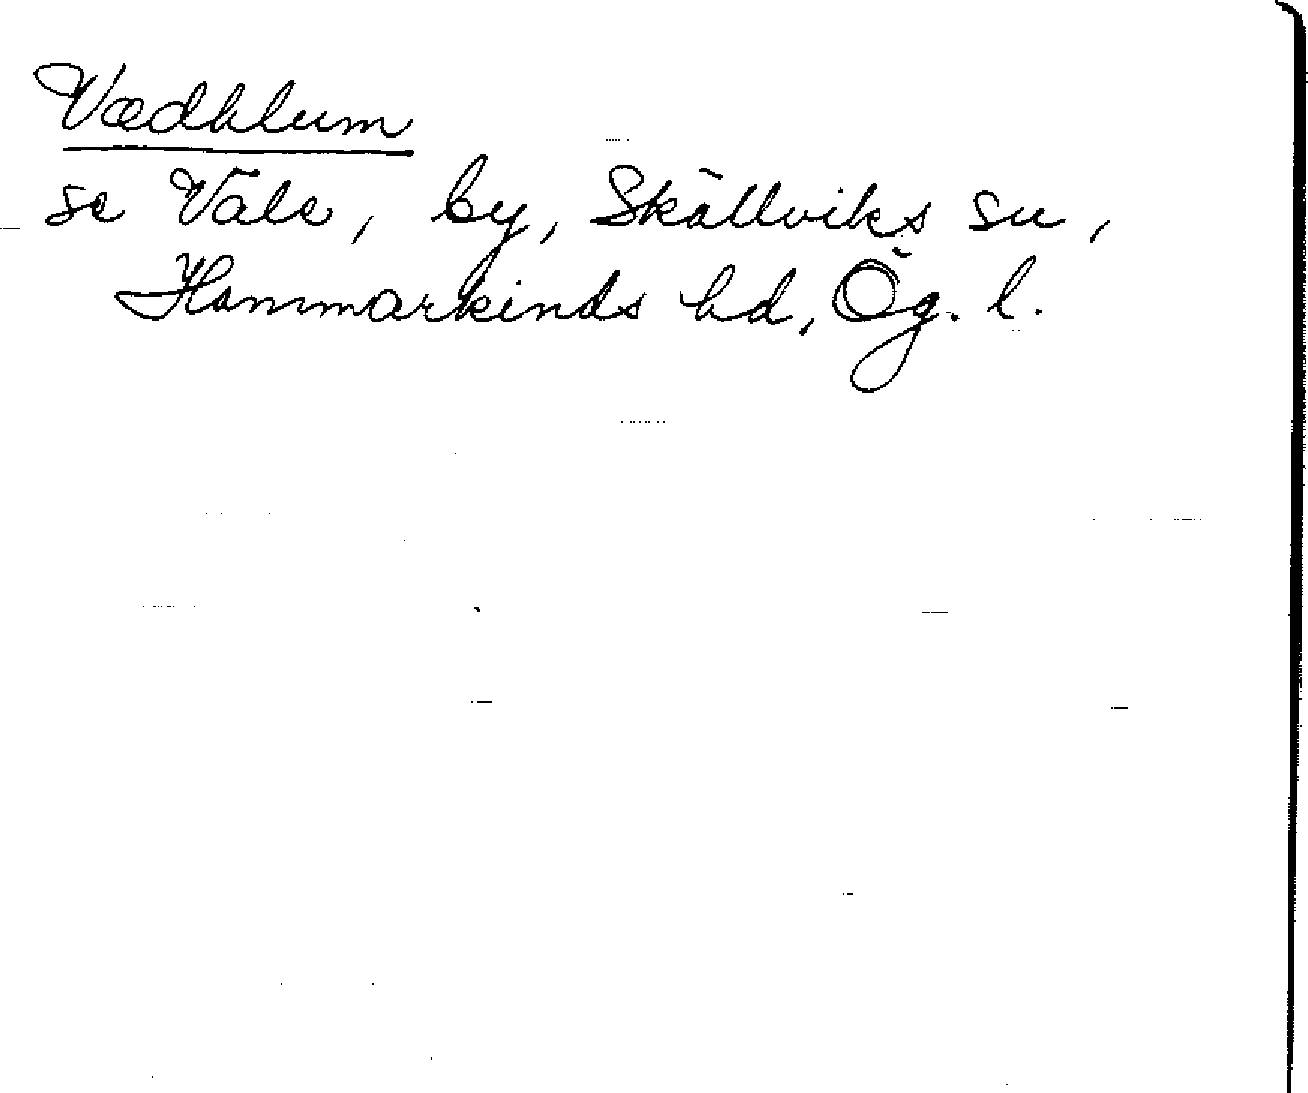 Vædhlum
se Väle, by, Skällviks sn,
Hammarkinds hd, Ög. l.